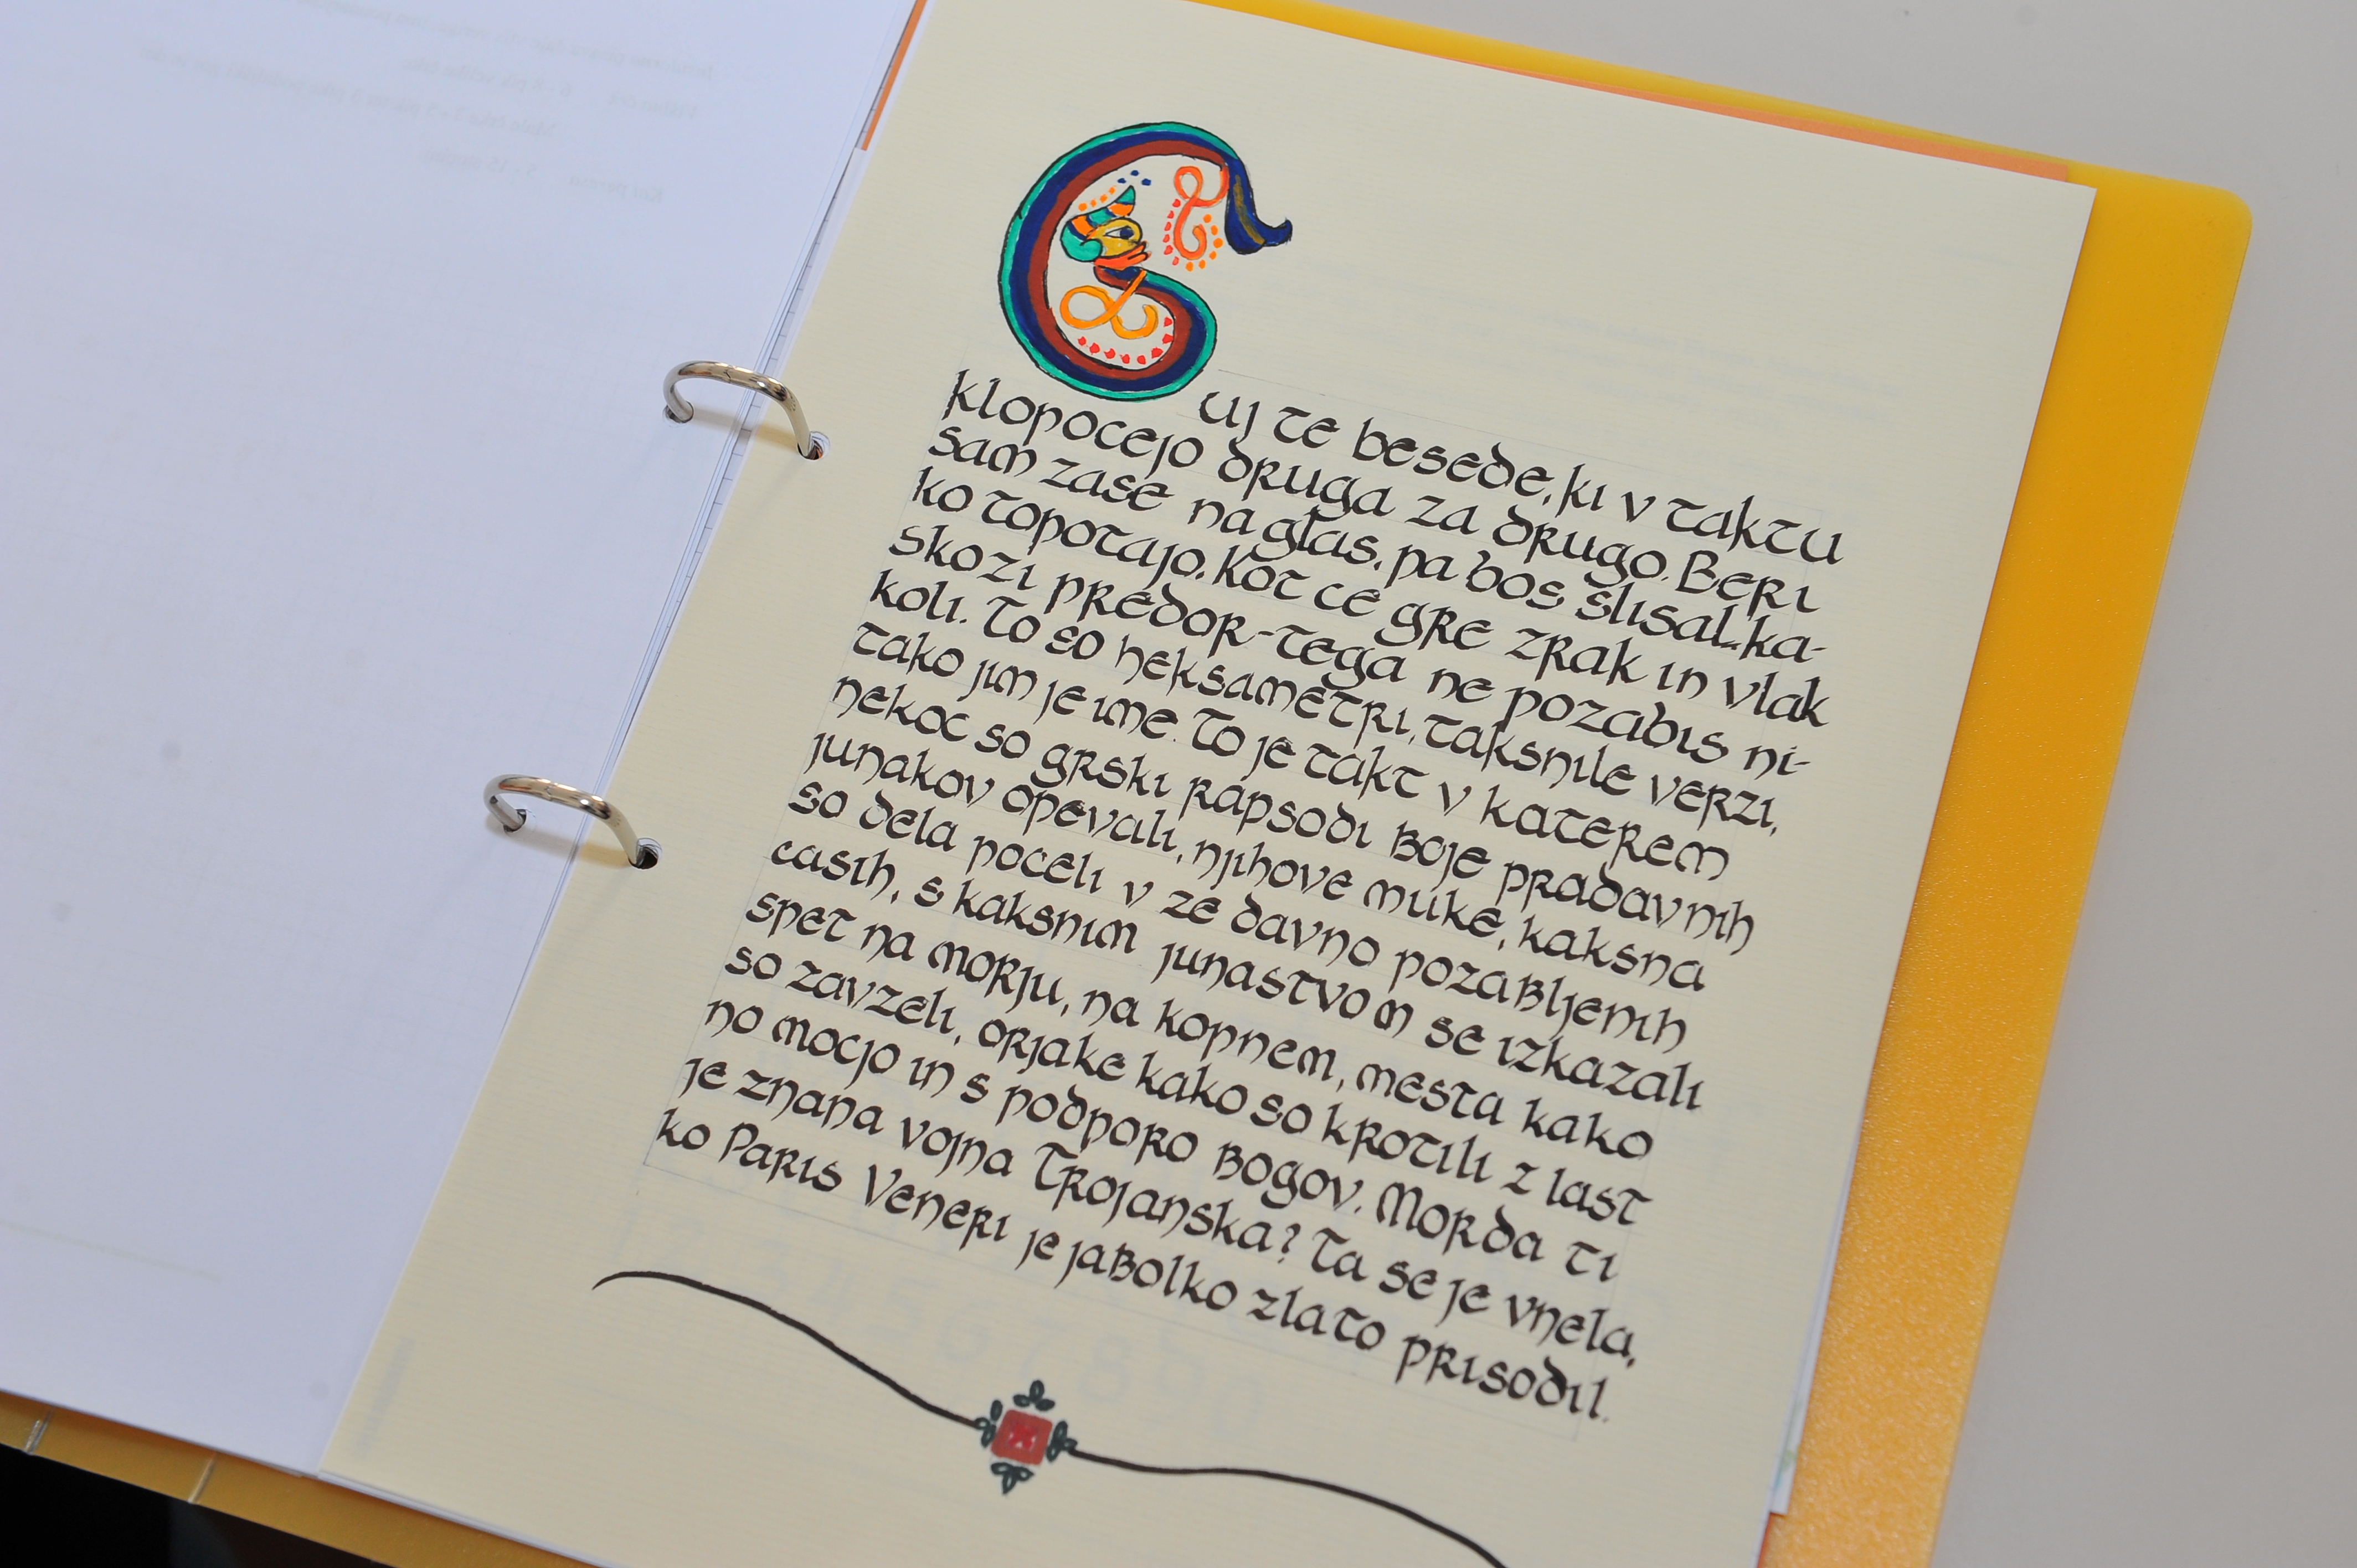 Cuj te besede, ki v taktu
klopocejo druga za drugo. Beri
sam zase na glas, pa bos slisal ka-
ko topotajo. Kot ce gre zrak in vlak
skozi predor-tega ne pozabis ni-
koli. To so heksametri, taksnile verzi,
tako jim je ime. To je takt v katerem
nekoc so grski rapsodi boje pradavnih
junakov opevali, njihove muke, kaksna
so dela poceli v ze davno pozabljenih
casih, s kaksnim junastvom se izkazali
spet na morju, na kopnem, mesta kako
so zavzeli, orjake kako so krotili z last
no mocjo in s podporo bogov. Morda ti
je znana vojna Trojanska? Ta se je vnela,
ko Paris Veneri je jabolko zlato prisodil.